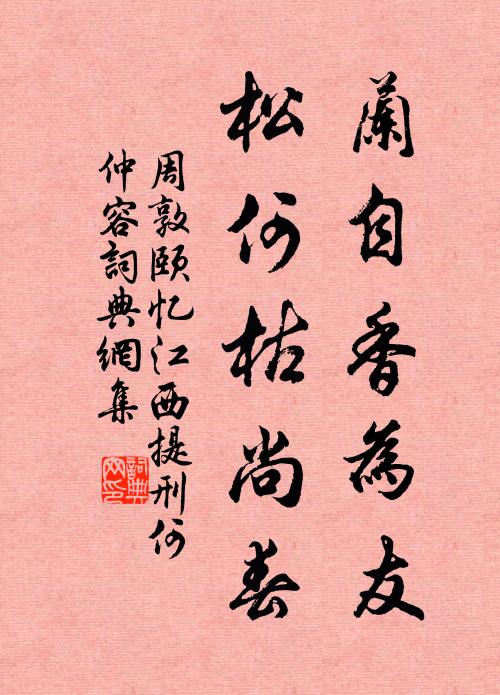 蘭自香為友
松何枯尚春
周敦頤忆江西提刑何
仲容詞典網集
詞典网印